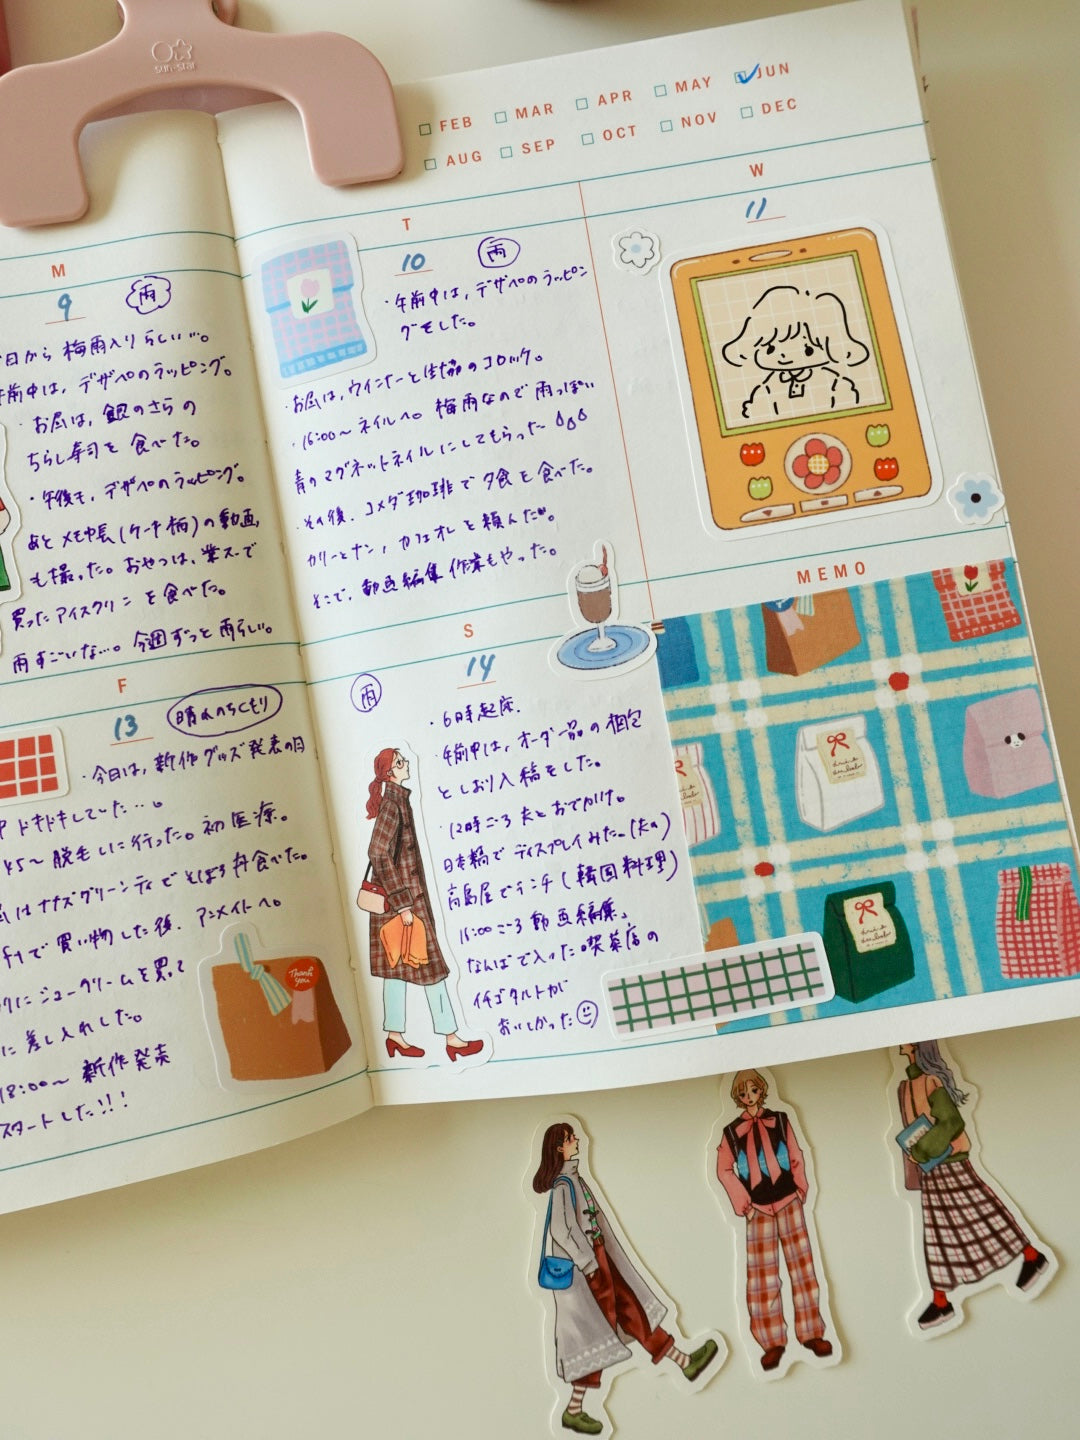 sun-star
FEB MAR APR MAY JUN
AUG SEP OCT NOV DEC
M
9
雨
日から梅雨入りらしい…。
午前中は、デザペのラッピング。
お昼は、銀のさらの
ちらし寿司を食べた。
・午後も、デザペのラッピング。
あとメモ帳(ケーキ柄)の動画
も撮った。おやつは、業スーで
買ったアイスクリンを食べた。
雨すごいな…。今週ずっと雨らしい。
T
10
雨
・午前中は、デザペのラッピン
グをした。
・お昼は、ウインナーと生協のコロッケ。
・16:00〜ネイルへ。梅雨なので雨っぽい
青のマグネットネイルにしてもらった
・その後、コメダ珈琲で夕食を食べた。
カリーとナン、カフェオレを頼んだ。
そこで、動画編集作業もやった。
W
11
F
13
晴れのちくもり
・今日は、新作グッズ発表の日
ドキドキしていた…。
45〜脱毛しに行った。初医療。
はナナズグリーンティでそぼろ丼食べた。
で買い物した後、アニメイトへ。
にシュークリームを買って
に差し入れした。
18:00〜新作発売
スタートした!!!
Thank you
S
14
雨
・6時起床.
・午前中は、オーダー品の梱包
としおり入稿をした。
・12時ごろ夫とおでかけ。
日本橋でディスプレイみた。(夫の)
高島屋でランチ(韓国料理)
16:00ごろ動画編集。
なんばで入った喫茶店の
イチゴタルトが
おいしかった
MEMO